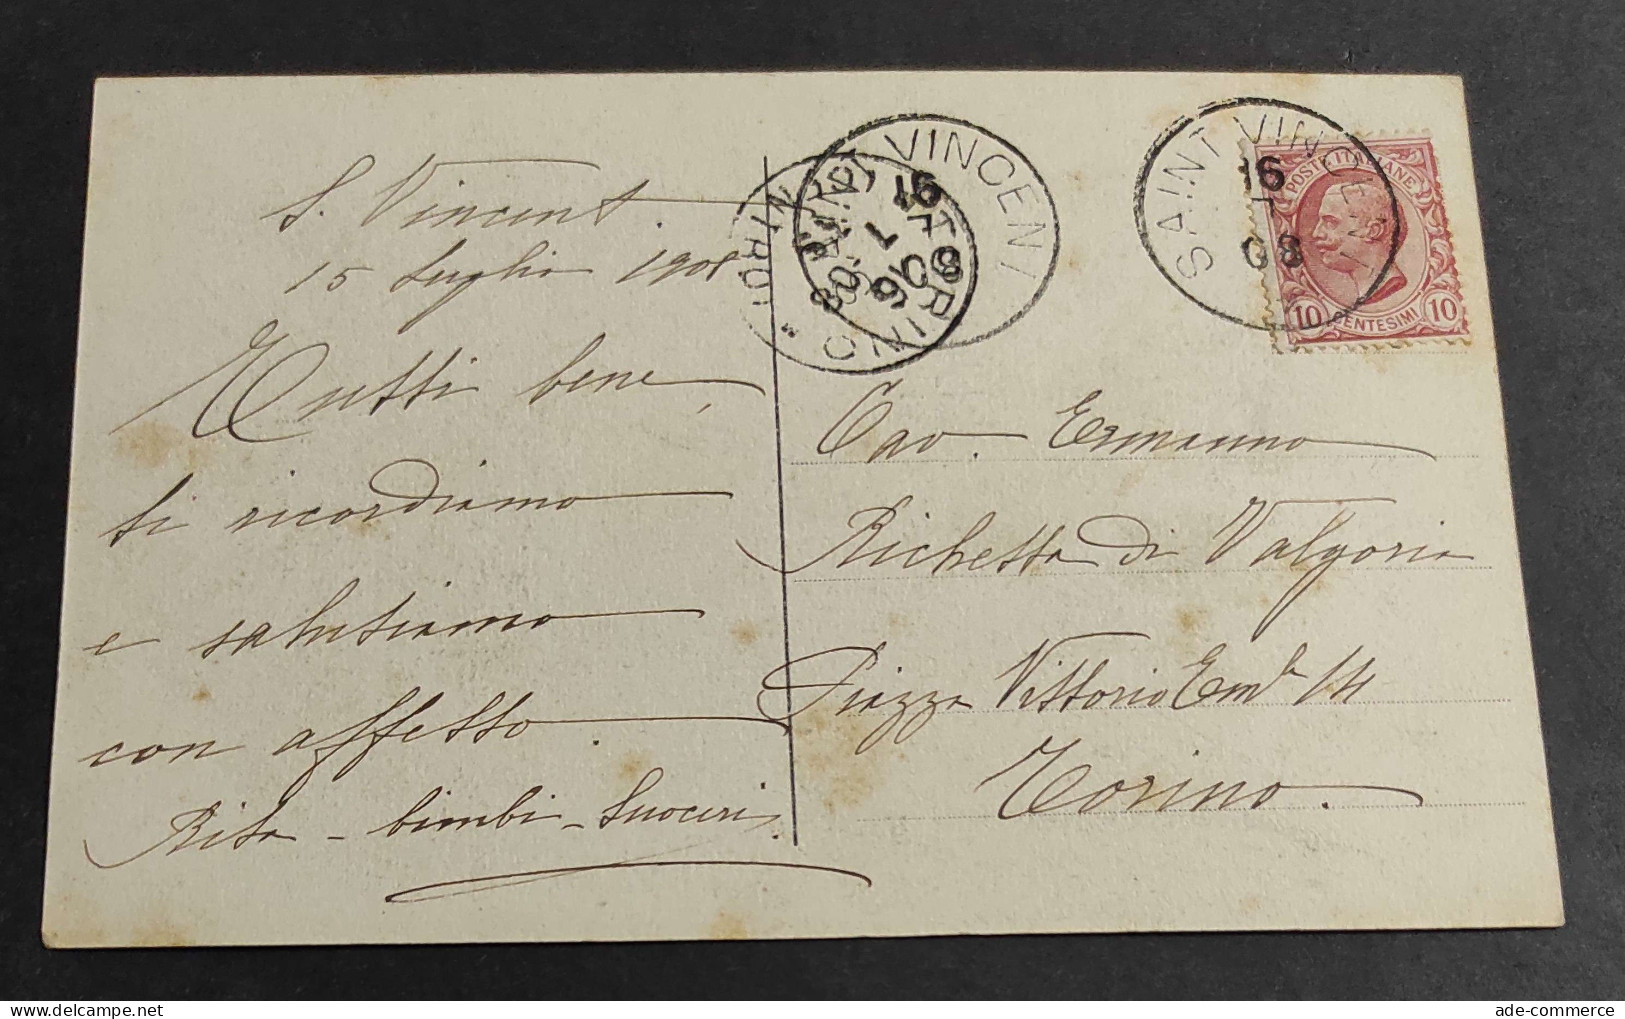 S. Vincent.
15 Luglio 1908
Tutti bene,
ti ricordiamo
e salutiamo
con affetto.
Rita - bimbi - Suoceri
SAINT VINCENT
16
7
08
TORINO
SAINT VINCENT
16
7
08
POSTE ITALIANE
10 CENTESIMI 10
Cav. Ermanno
Richetta di Valgoria
Piazza Vittorio Em. 14
Torino.
ade-commerce